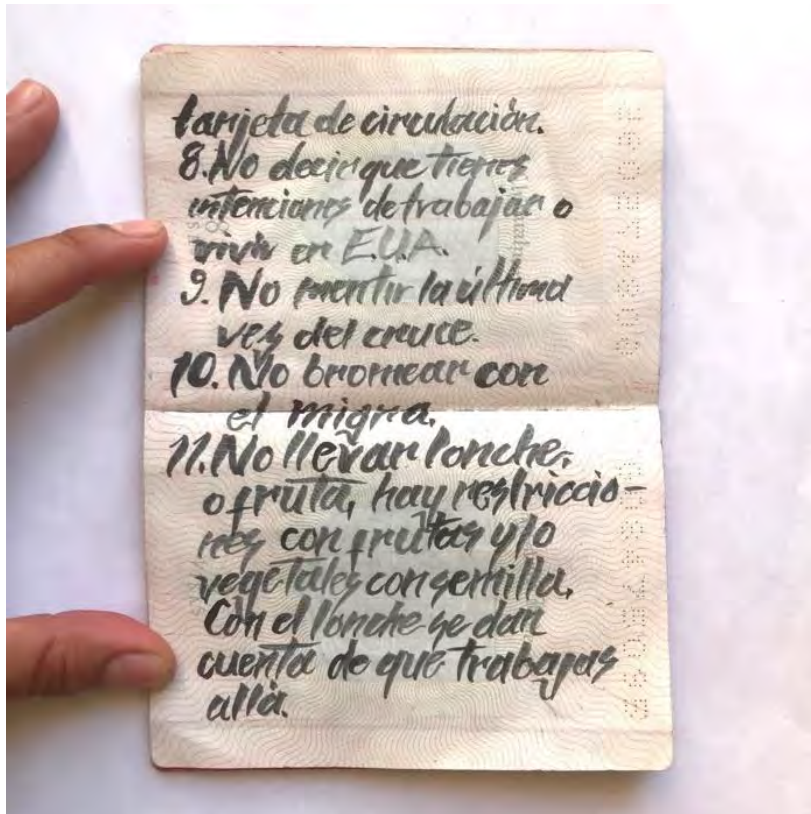 tarjeta de circulación.
8. No decir que tienes
intenciones de trabajar o
vivir en E.U.A.
9. No mentir la última
ves del cruce.
10. No bromear con
el migra.
11. No llevar lonche,
o fruta, hay restriccio-
nes con frutas y/o
vegetales con semilla.
Con el lonche se dan
cuenta de que trabajas
allá.